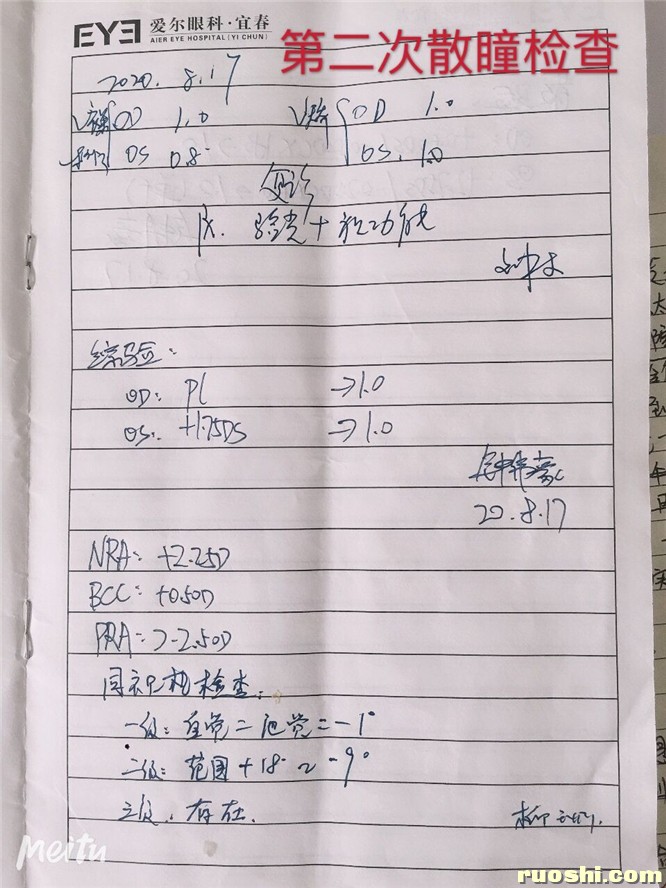 EYE 爱尔眼科·宜春
AIER EYE HOSPITAL (YI CHUN)
第二次散瞳检查
2020. 8.17
V裸 OD 1.0 V矫 OD 1.0
OS 0.8 OS. 1.0
复诊
验光+视功能
综验:
OD: Pl →1.0
OS: +1.75DS →1.0
20.8.17
NRA: +2.25D
BCC: +0.50D
PRA: >-2.50D
同视机检查:
一级: 自觉=他觉=-1°
二级: 范围+18°~-9°
三级: 存在.
Meitu
ruoshi.com